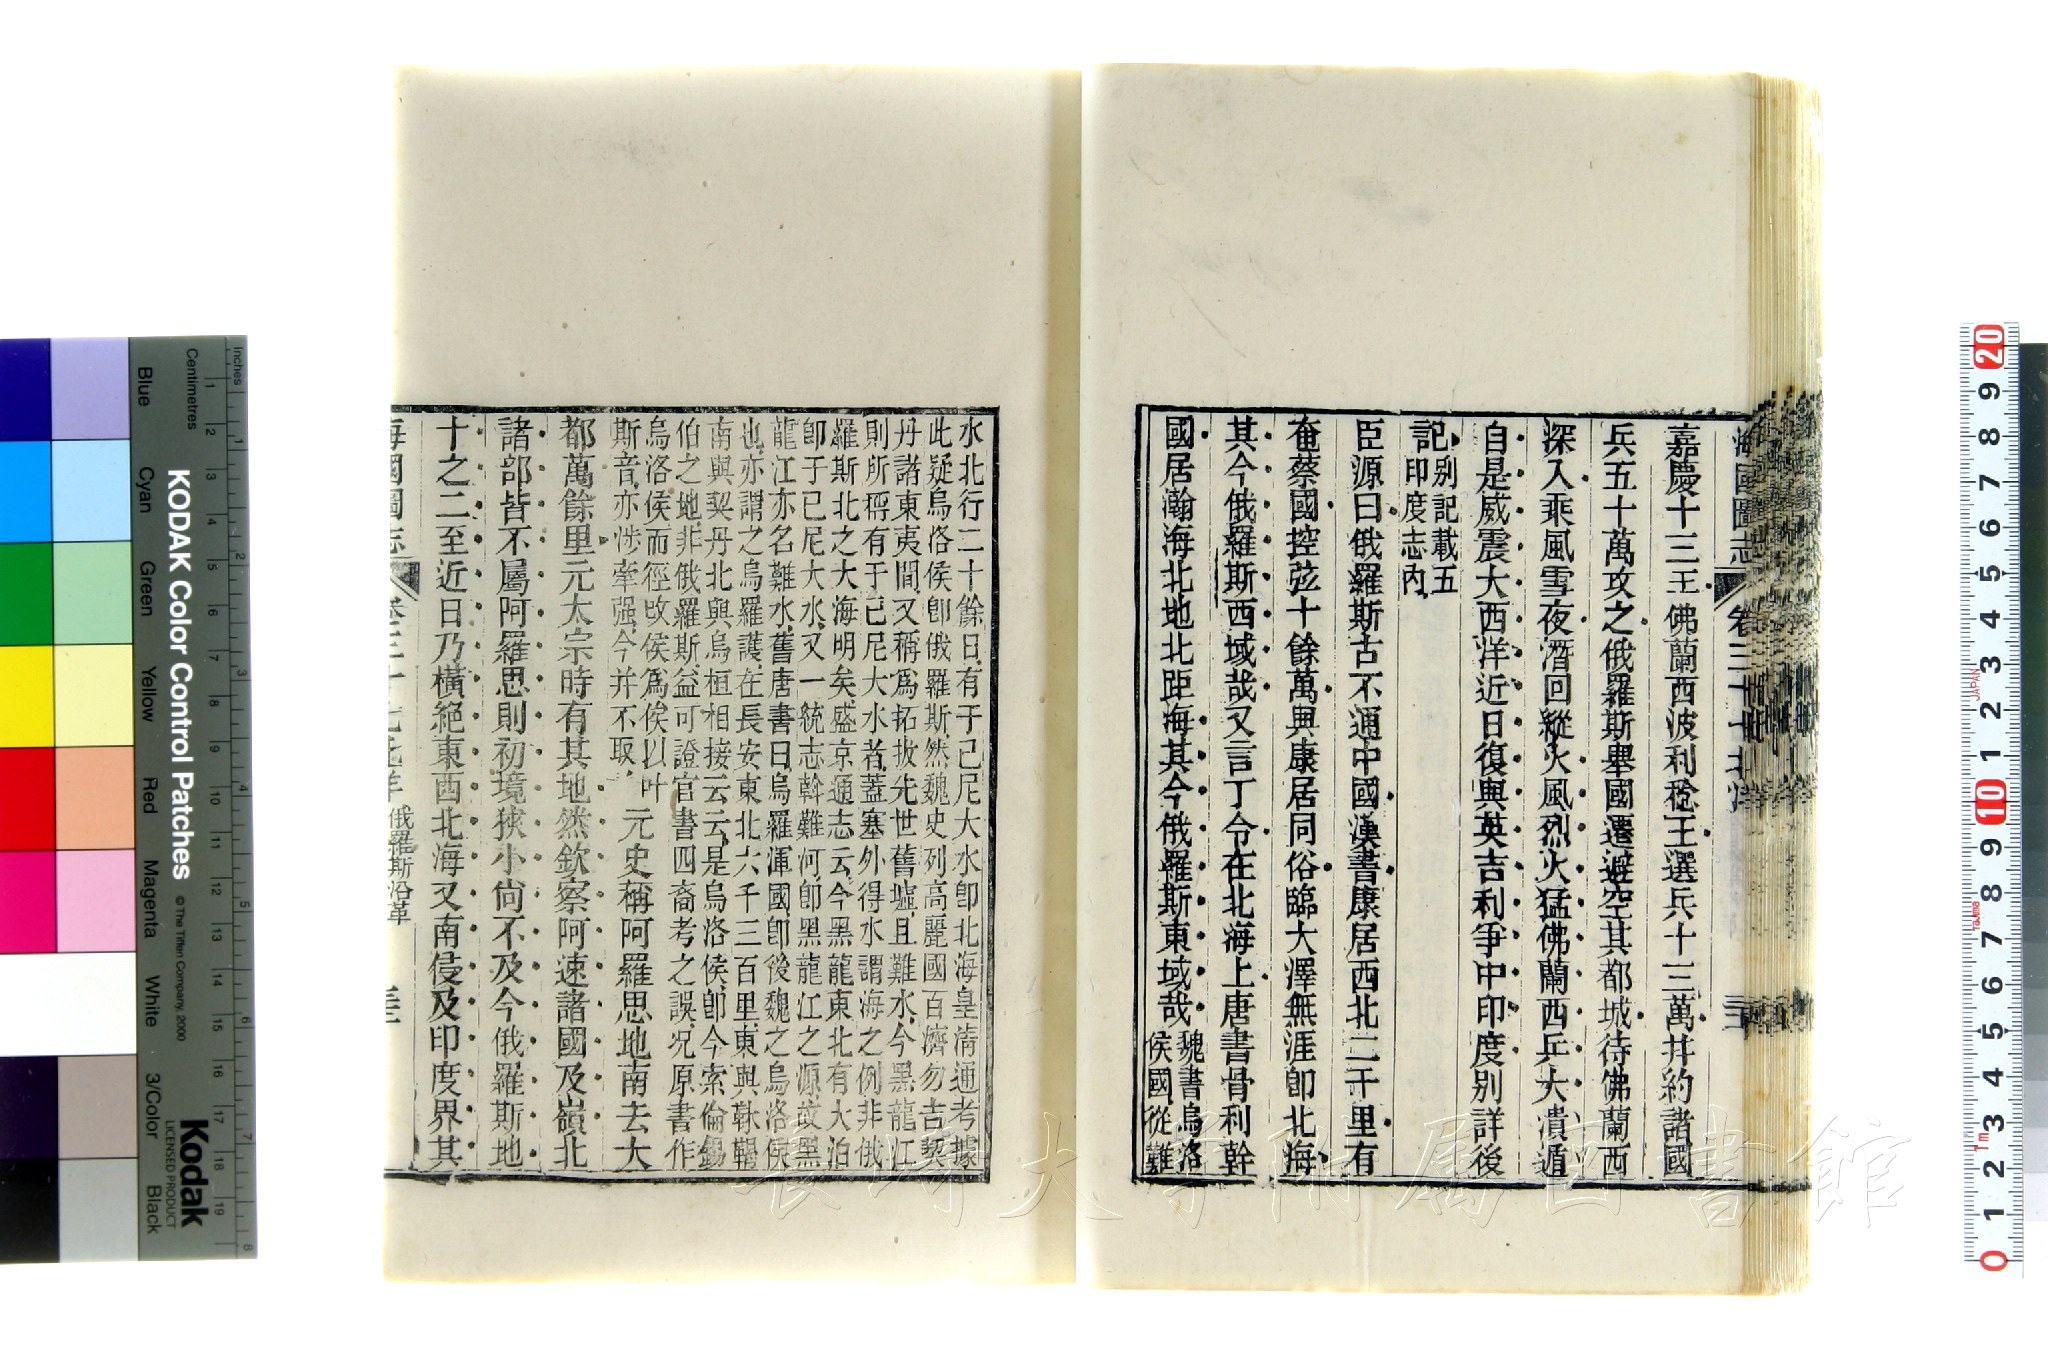 海國圖志
嘉慶十三王佛蘭西波利稔王選兵十三萬幷約諸國
兵五十萬攻之俄羅斯舉國遷避空其都城待佛蘭西
深入乘風雪夜潛回縱火風烈火猛佛蘭西兵大潰遁
自是威震大西洋近日復與英吉利爭中印度别詳後
記别記載五
印度志內
臣源曰俄羅斯古不通中國漢書康居西北二千里有
奄蔡國控弦十餘萬與康居同俗臨大澤無涯卽北海
其今俄羅斯西域哉又言丁令在北海上唐書骨利幹
國居瀚海北地北距海其今俄羅斯東域哉魏書烏洛
侯國從難
水北行二十餘日有于已尼大水卽北海皇淸通考據
此疑烏洛侯卽俄羅斯然魏史列高麗國百濟勿吉契
丹諸東夷間又稱爲拓拔先世舊墟且難水今黑龍江
則所稱有于已尼大水者蓋塞外得水謂海之例非俄
羅斯北之大海明矣盛京通志云今黑龍東北有大泊
卽于已尼大水又一統志斡難河卽黑龍江之源故黑
龍江亦名難水舊唐書曰烏羅渾國卽後魏之烏洛侯
也亦謂之烏羅護在長安東北六千三百里東與靺鞨
南與契丹北與烏桓相接云云是烏洛侯卽今索倫錫
伯之地非俄羅斯益可證官書四裔考之誤况原書作
烏洛侯而徑改侯爲俟以叶
斯音亦涉牽强今并不取
元史稱阿羅思地南去大
都萬餘里元太宗時有其地然欽察阿速諸國及嶺北
諸部皆不屬阿羅思則初境狹小尙不及今俄羅斯地
十之二至近日乃橫絕東西北海又南侵及印度界其
海國圖志
俄羅斯沿革
KODAK Color Control Patches
© The Tiffen Company, 2000
Kodak
LICENSED PRODUCT
Inches
Centimetres
Blue
Cyan
Green
Yellow
Red
Magenta
White
3/Color
Black
JAPAN
長崎大學附屬圖書館